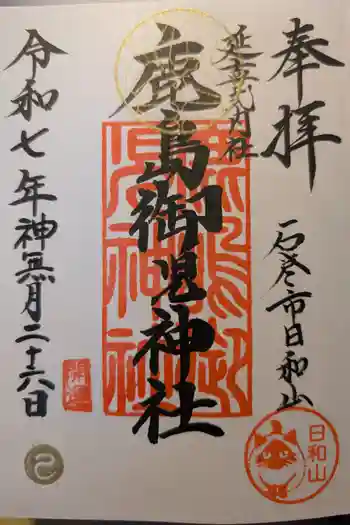 奉拝
石巻市日和山
日和山
延喜式内社
鹿島御児神社
鹿島御児神社
令和七年神無月二十六日
巳